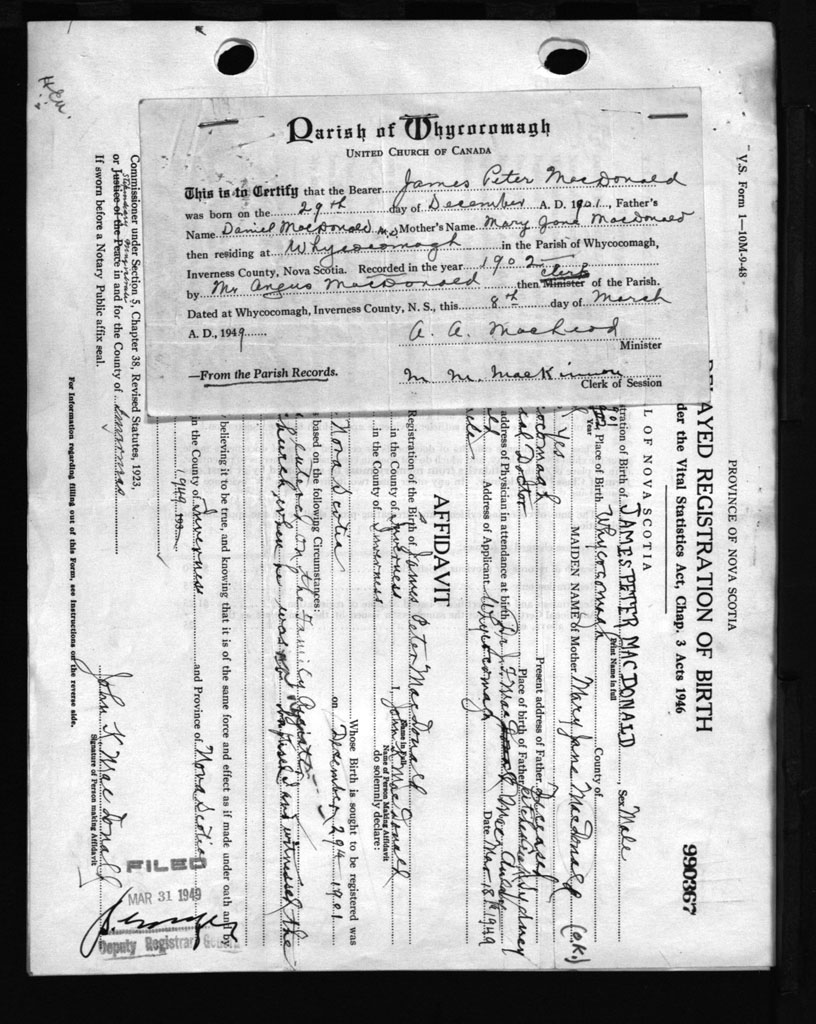 Parish of Whycocomagh
UNITED CHURCH OF CANADA
This is to Certify that the Bearer James Peter MacDonald
was born on the 29th day of December A. D. 1901, Father's
Name Daniel MacDonald Mother's Name Mary Jane MacDonald
then residing at Whycocomagh in the Parish of Whycocomagh,
Inverness County, Nova Scotia. Recorded in the year 1902
by Mr Angus MacDonald then Minister Clerk of the Parish.
Dated at Whycocomagh, Inverness County, N. S., this 8th day of March
A. D., 1949
A. A. MacLeod
Minister
—From the Parish Records.
M. M. MacKinnon
Clerk of Session
V.S. Form 1—10M-9-48
PROVINCE OF NOVA SCOTIA
AYED REGISTRATION OF BIRTH
der the Vital Statistics Act, Chap. 3 Acts 1946
990367
L OF NOVA SCOTIA
tration of Birth of JAMES PETER MACDONALD, Sex Male
Print Name in full
Place of Birth Whycocomagh County of
Yes MAIDEN NAME of Mother Mary Jane MacDonald (O.K.)
ocomagh Present address of Father Deceased
Doctor Place of birth of Father
address of Physician in attendance at birth Dr
Address of Applicant Whycocomagh Date Mar 18th 1949
AFFIDAVIT
Registration of the Birth of James Peter MacDonald
Name in Full
in the County of Inverness I, John K. MacDonald
Name of Person Making Affidavit
in the County of Inverness do solemnly declare:
Whose Birth is sought to be registered was
Nova Scotia on December 29th 1901
s based on the following Circumstances:
on the Family Register
church when he was baptised and witnessed the
believing it to be true, and knowing that it is of the same force and effect as if made under oath and by
in the County of Inverness and Province of Nova Scotia
1949 193
John K. MacDonald
Signature of Person making Affidavit
Commissioner under Section 5, Chapter 38, Revised Statutes, 1923,
or Justice of the Peace in and for the County of Inverness
Stipendiary Magistrate
If sworn before a Notary Public affix seal.
For Information regarding filling out of this Form, see Instructions on the reverse side.
FILED
MAR 31 1949
Deputy Registrar General